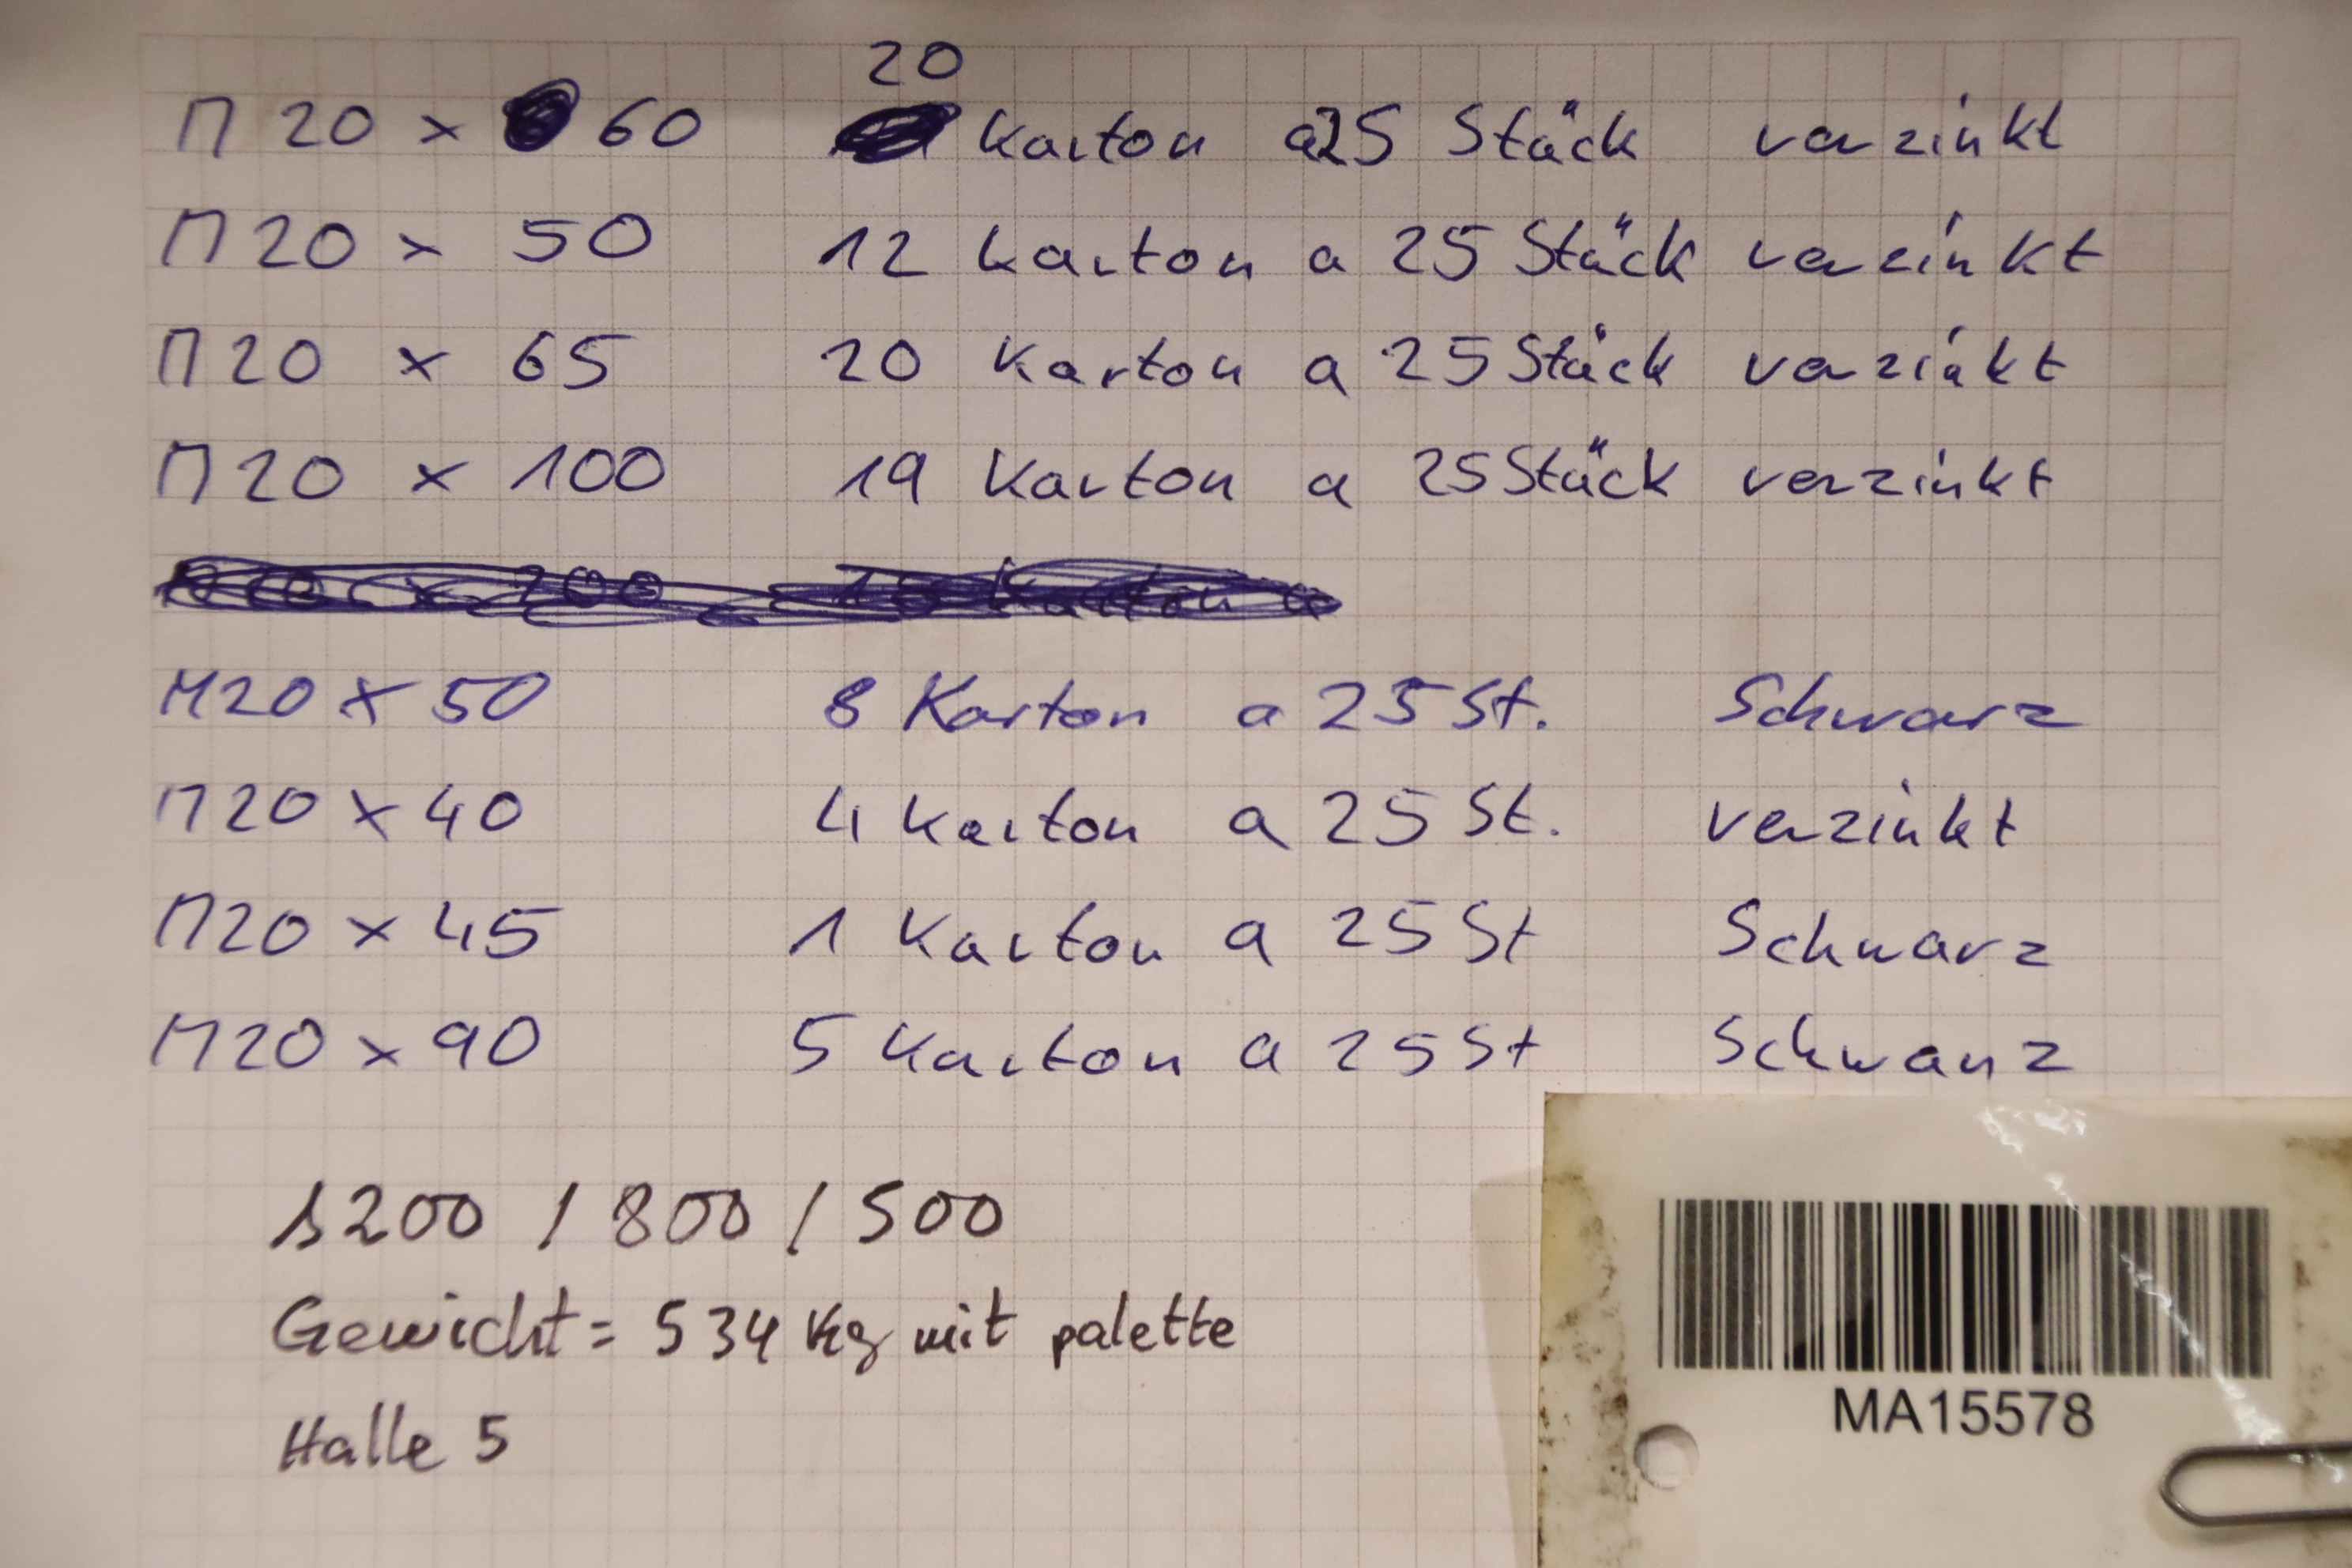 20
M 20 x 60 Karton a 25 Stück verzinkt
M 20 x 50 12 Karton a 25 Stück verzinkt
M 20 x 65 20 Karton a 25 Stück verzinkt
M 20 x 100 19 Karton a 25 Stück verzinkt
x 200 Karton a
M20 x 50 8 Karton a 25 St. Schwarz
M20 x 40 4 Karton a 25 St. verzinkt
M20 x 45 1 Karton a 25 St Schwarz
M20 x 90 5 Karton a 25 St Schwarz
1200 / 800 / 500
Gewicht = 534 Kg mit palette
Halle 5
MA15578